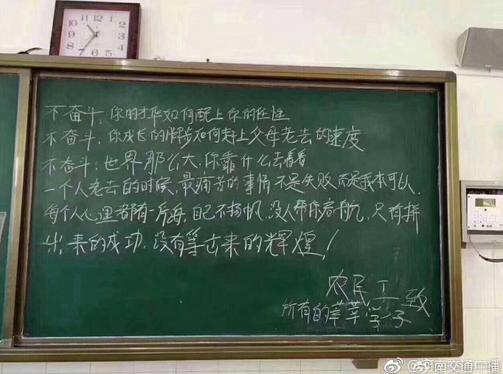 不奋斗,你的才华如何配上你的任性
不奋斗,你成长的脚步如何赶上父母老去的速度
不奋斗,世界那么大,你靠什么去看看
一个人老去的时候,最痛苦的事情不是失败而是我本可以,
每个人心里都有一片海,自己不扬帆,没人帮你启航,只有拼
出来的成功,没有等出来的辉煌!
农民工致
所有的莘莘学子
南交通广播